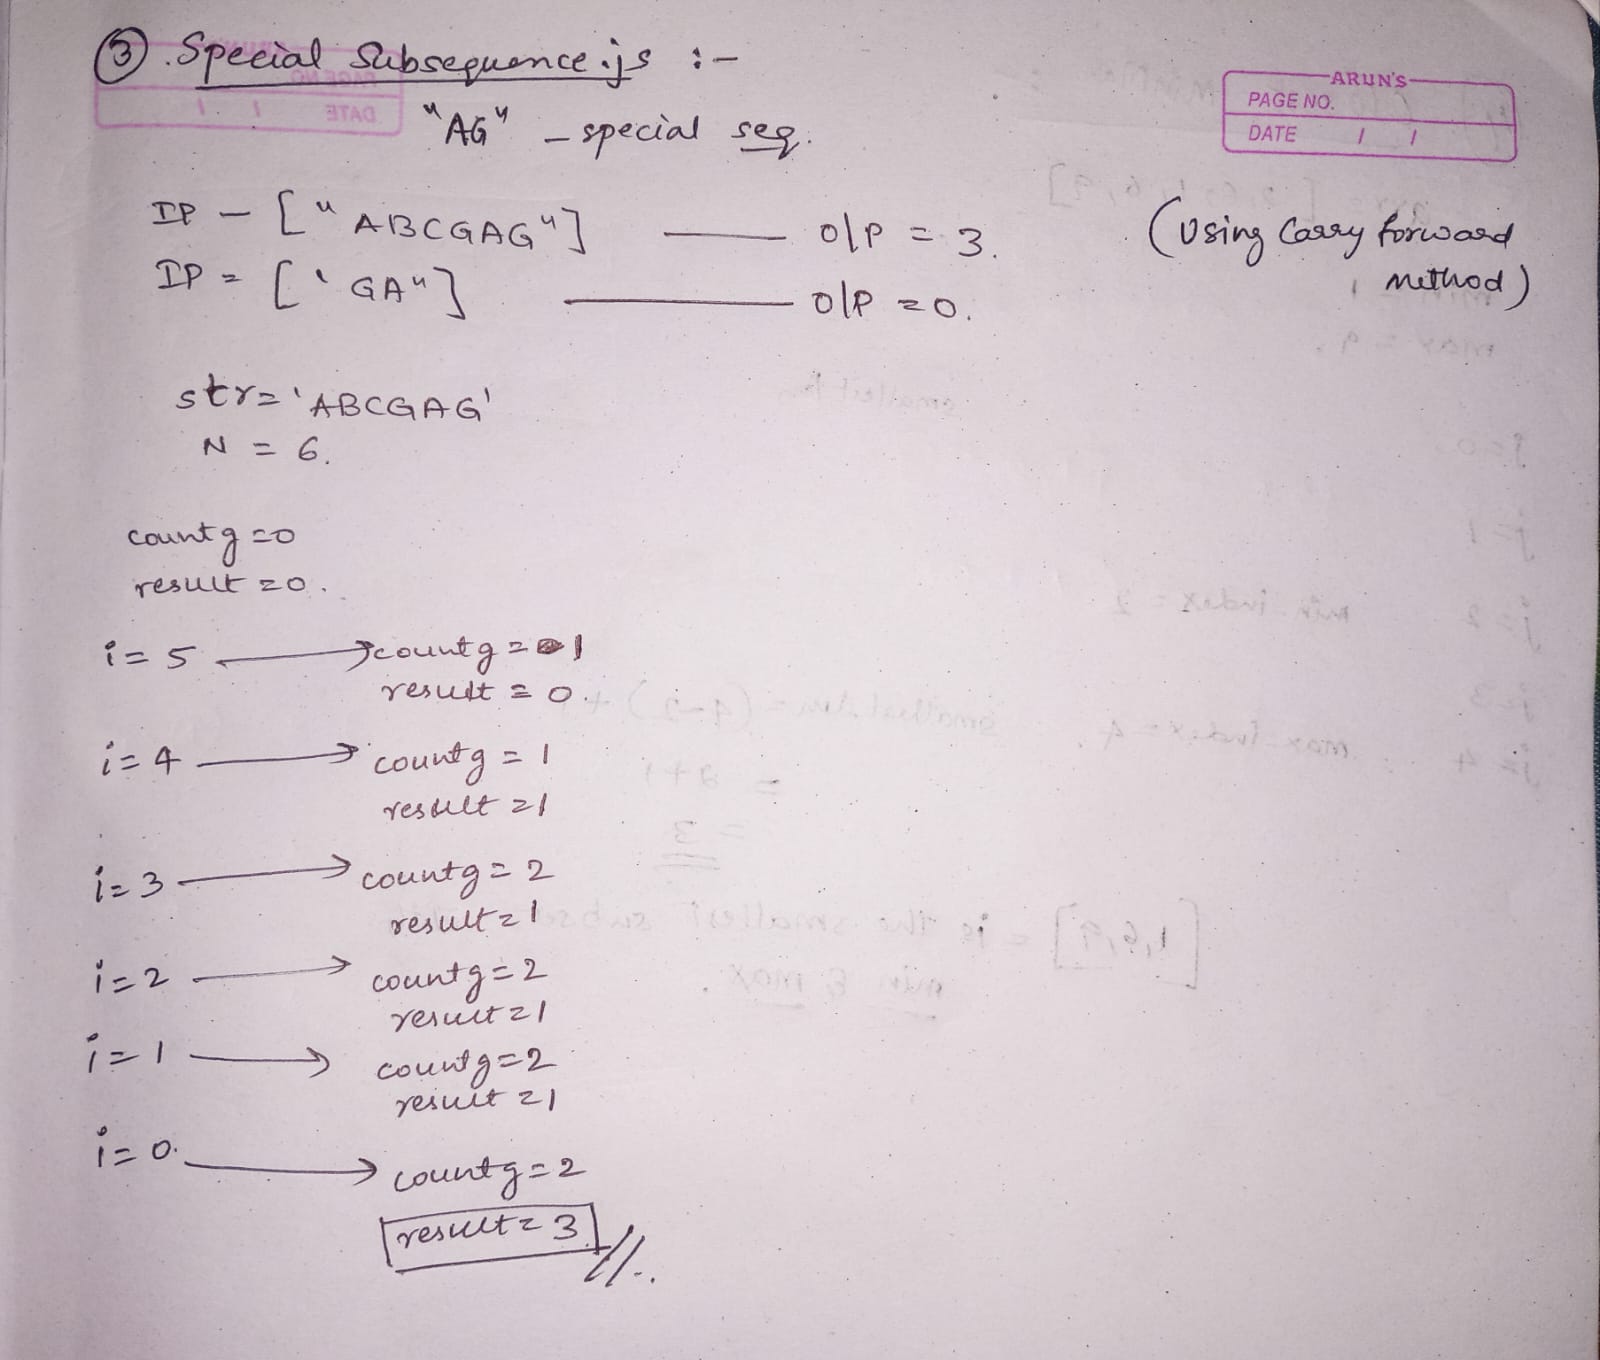 ③. Special Subsequence.js :-
"AG" - special seq.
ARUN'S
PAGE NO.
DATE / /
IP - ["ABCGAG"] —— o/p = 3.
(Using Carry forward method)
IP = ['GA"] —— o/p = 0.
str='ABCGAG'
N = 6.
countg=0
result=0.
i=5 → countg=1
result=0.
i=4 → countg=1
result=1
i=3 → countg=2
result=1
i=2 → countg=2
result=1
i=1 → countg=2
result=1
i=0. → countg=2
result=3